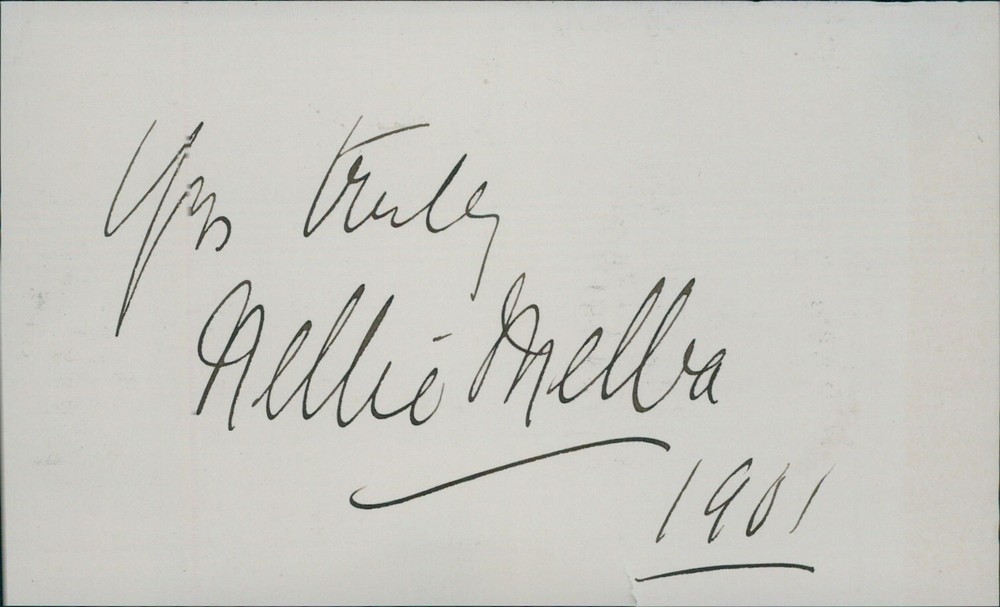 Yrs truly
Nellie Melba
1901